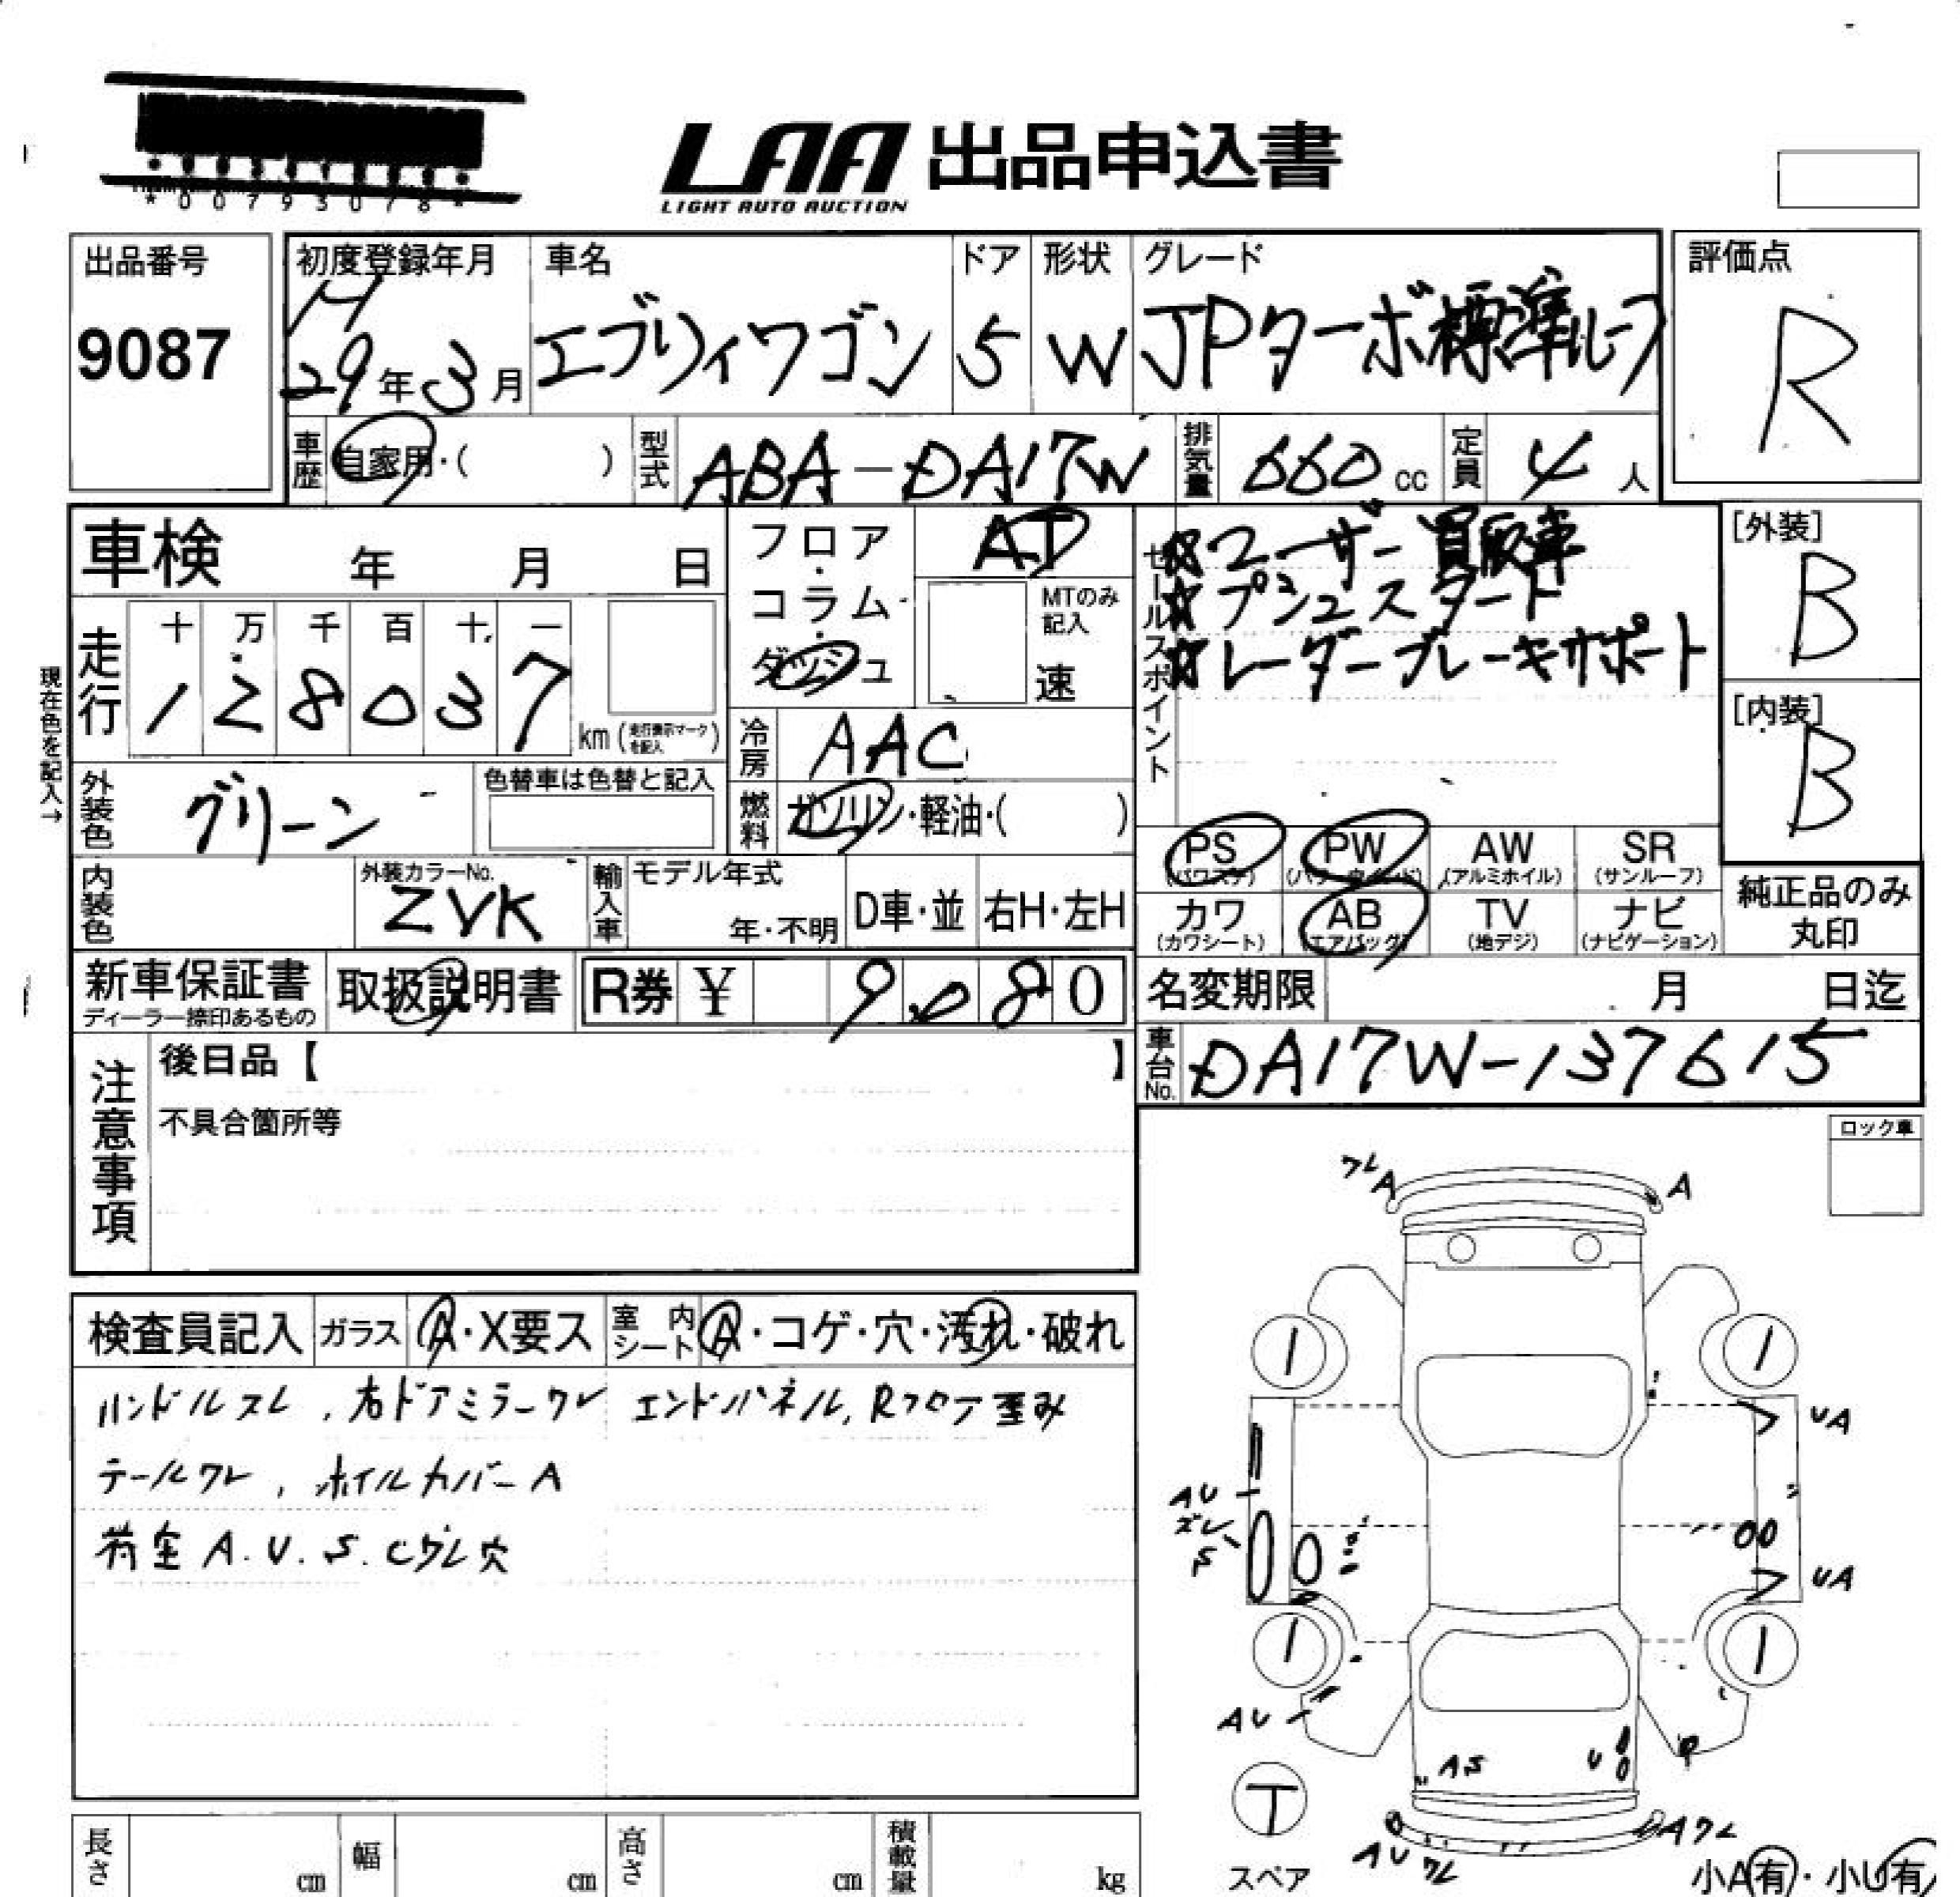 LAA 出品申込書
LIGHT AUTO AUCTION
出品番号
9087
初度登録年月
H
29年3月
車名
エブリィワゴン
ドア
5
形状
W
グレード
JPターボ標準ルーフ
評価点
R
車歴 自家用・( )
型式 ABA-DA17W
排気量 660 cc
定員 4 人
車検 年 月 日
フロア・コラム・ダッシュ
AT
MTのみ記入
速
セールスポイント
☆ユーザー買取車
☆プシュスタート
☆レーダーブレーキサポート
[外装]
B
[内装]
B
走行
十 万 千 百 十 一
1 2 8 0 3 7 km (走行表示マークを記入)
現在色を記入→
冷房 AAC
外装色 グリーン
色替車は色替と記入
燃料 ガソリン・軽油・( )
PS (パワステ)
PW (パワーウインド)
AW (アルミホイル)
SR (サンルーフ)
カワ (カワシート)
AB (エアバッグ)
TV (地デジ)
ナビ (ナビゲーション)
純正品のみ丸印
内装色
外装カラーNo.
ZVK
輸入車
モデル年式
年・不明
D車・並
右H・左H
新車保証書
ディーラー捺印あるもの
取扱説明書
R券 ¥ 9,080
名変期限 月 日迄
車台No. DA17W-137615
注意事項
後日品【 】
不具合箇所等
ロック車
検査員記入
ガラス A・X要ス
室内シート A・コゲ・穴・汚れ・破れ
ハンドルスレ,右ドアミラーワレ エンドパネル,Rフロア歪み
テールワレ,ホイルカバーA
荷室A.U.S.Cワレ穴
ワレ
A
A
1
1
UA
AU
ズレ
S
UA
1
1
AU
AS
U
P
T
スペア
AU
ワレ
Aワレ
小A有・小U有
長さ cm
幅 cm
高さ cm
積載量 kg